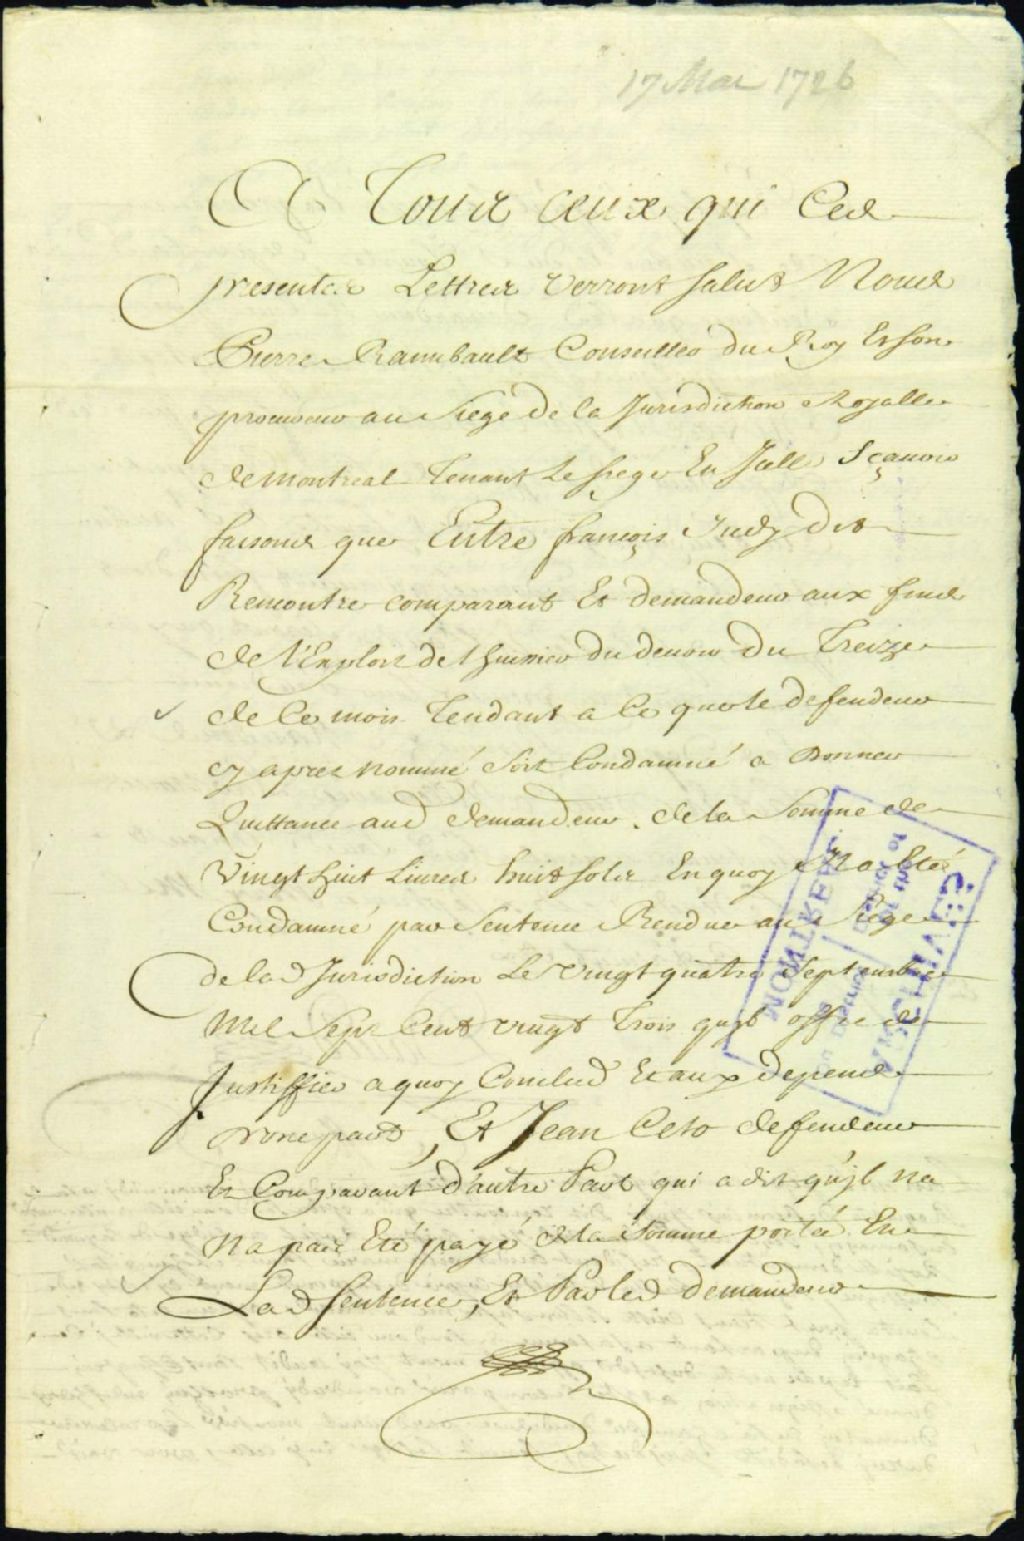 17 Mai 1726
A Tous ceux qui Ces
presentes Lettres verront salut Nous
Pierre Raimbault Conseiller du Roy Et son
procureur au Siege de la Jurisdiction Royalle
de Montreal Tenant Le siege En Icelle Sçavoir
faisons que Entre françois Judy dit
Remontre comparant Et demandeur aux fins
de l'Exploit de l'huissier du devoir du Treize
de Ce mois Tendant a Ce que le defendeur
cy apres nommé soit Condamné a donner
Quittance aud demandeur de la Somme de
Vingt huit Livres huit sols En quoy Il a Eté
Condamné par Sentence Rendue au Siege
de lad Jurisdiction Le vingt quatre Septembre
Mil Sept Cent vingt Trois quil offre de
Justiffier a quoy Conclud Et aux depens
d'vne part, Et Jean Celo deffendeur
Et Comparant d'autre Part qui a dit qu'jl na
Na pas Eté payé de la Somme portée En
Lad Sentence, Et Par led demandeur
ARCHIVES
MONTREAL